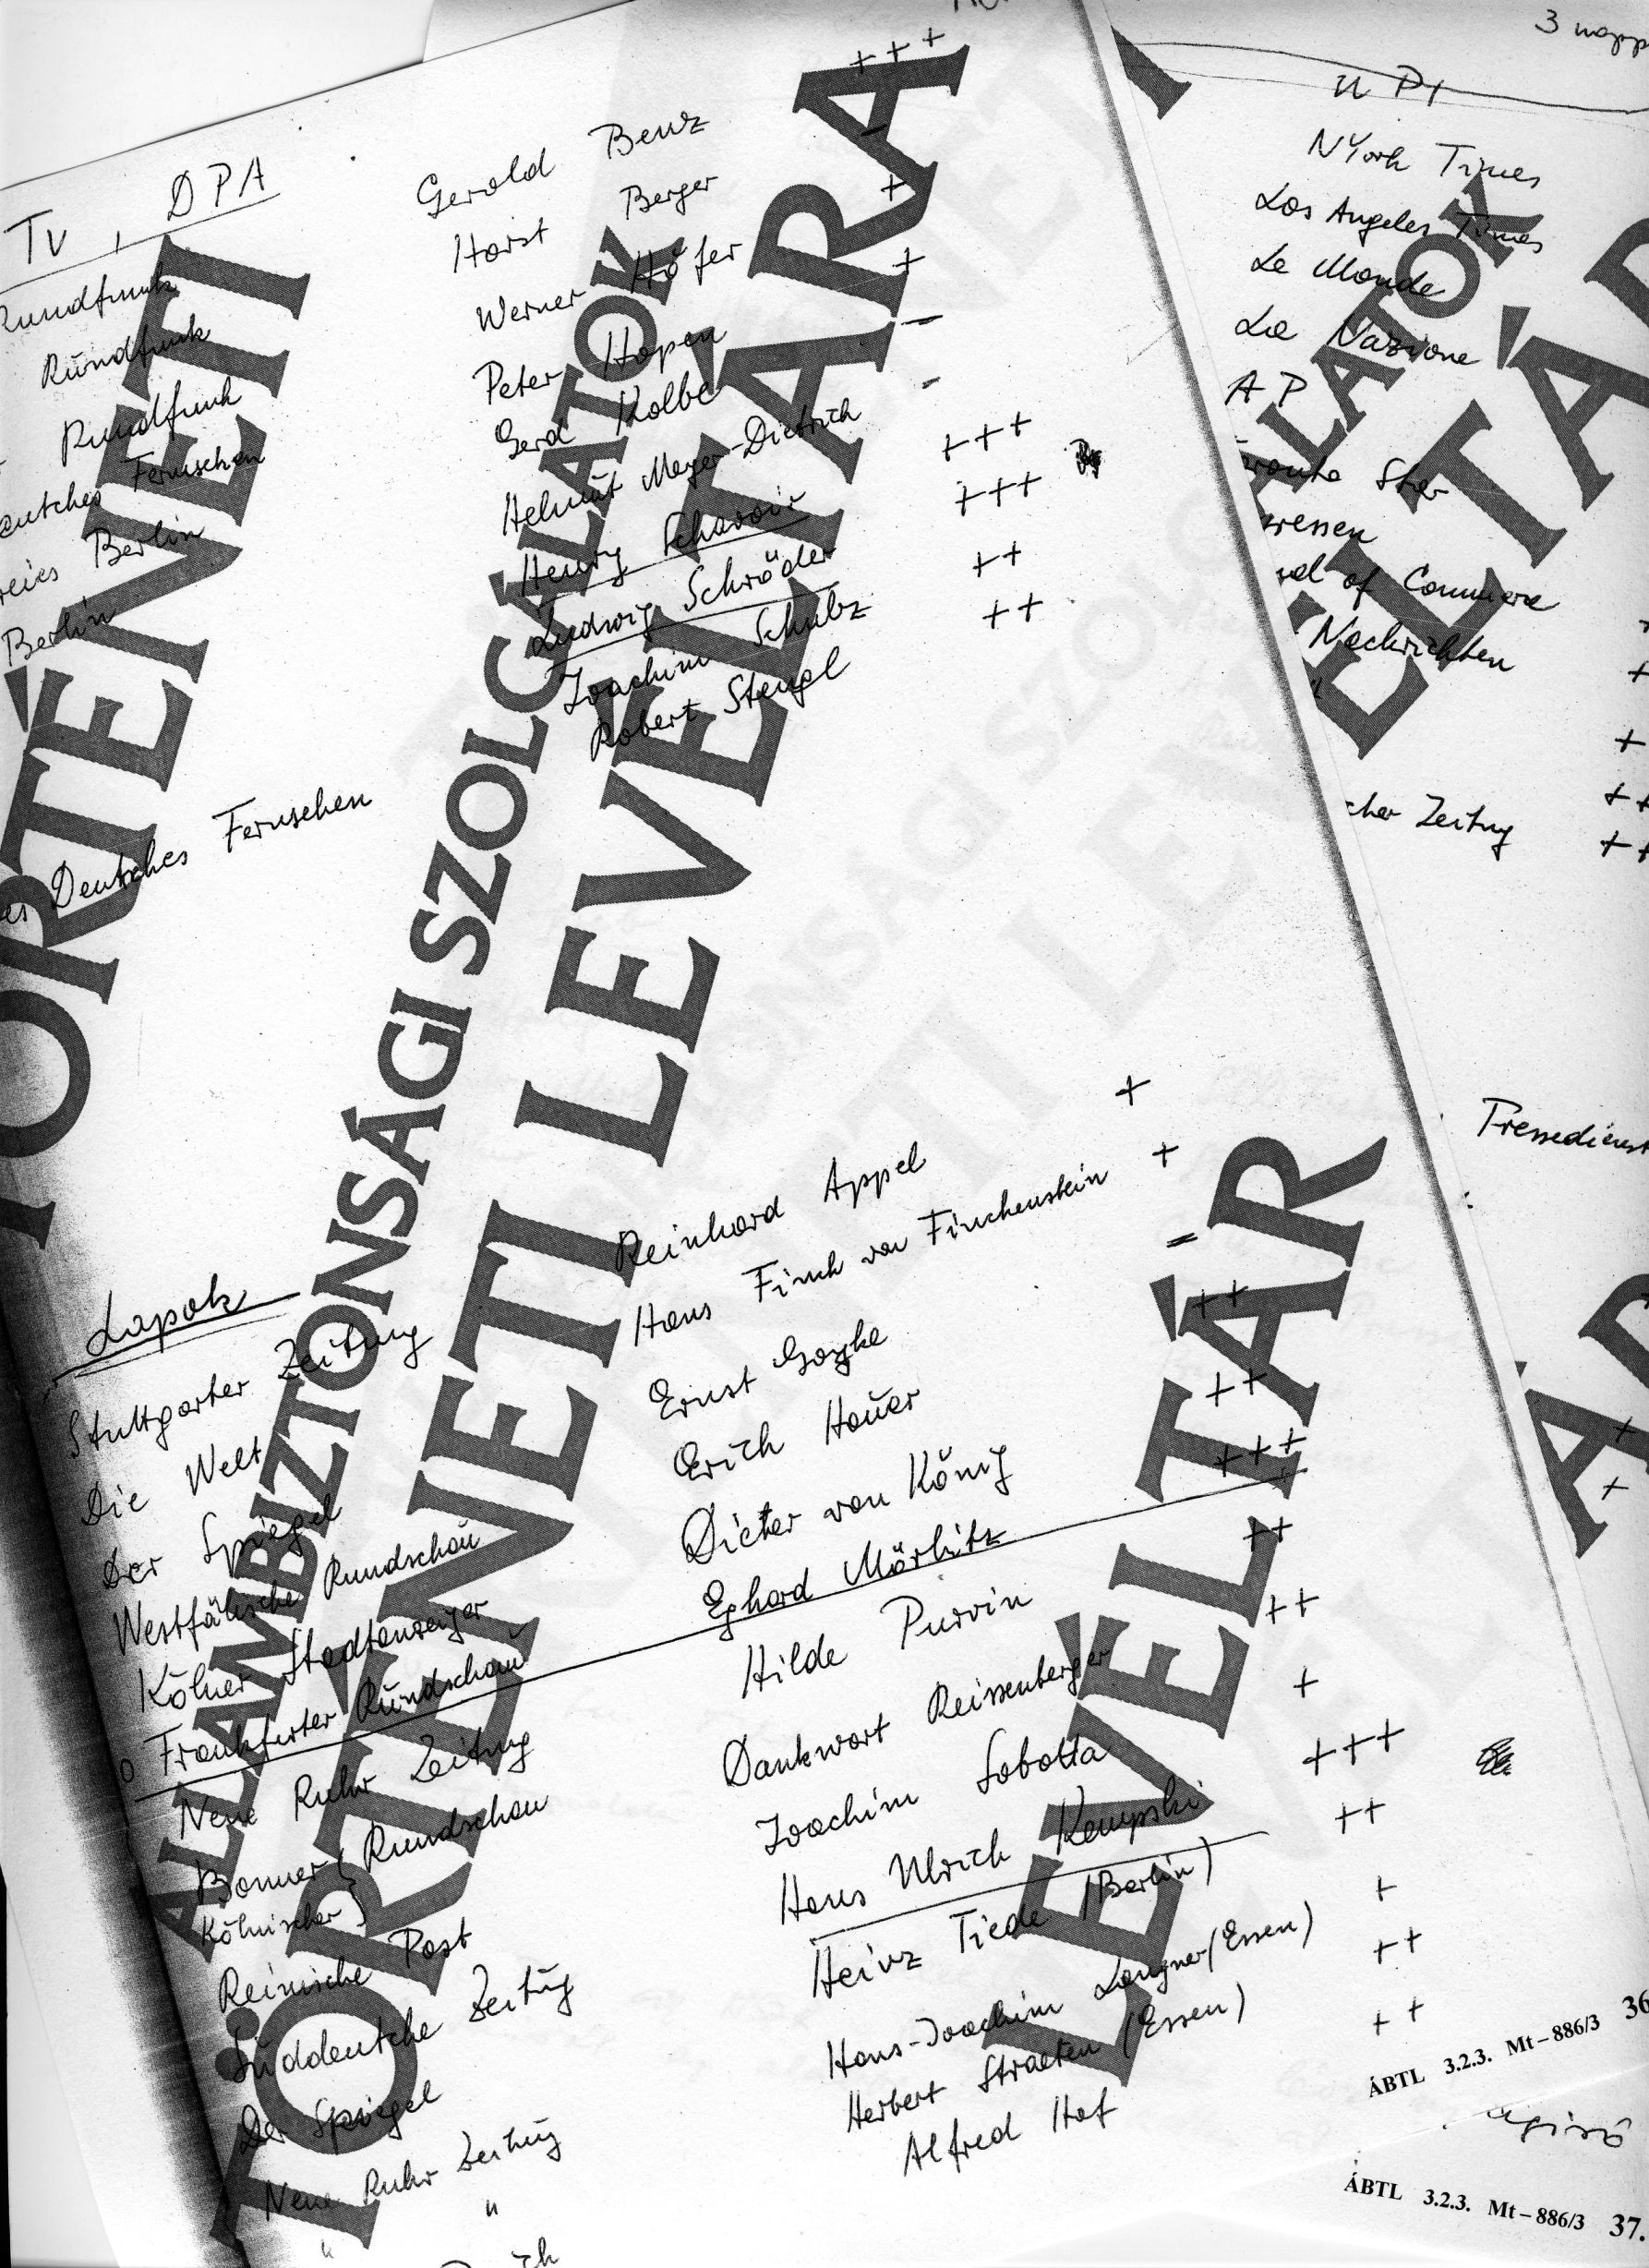 Tv, DPA
Rundfunk
Rundfunk
Rundfunk
Fernsehen
Berlin
Berlin
Deutsches Fernsehen
Gerold Benz
Horst Berger
Werner Höfer +
Peter Hopen +
Gerd Kolbe -
Helmut Meyer-Dietrich -
Henry Schavoir +++
Ludwig Schröder +++
Joachim Schulz ++
Robert Stengl ++
Lapok
Stuttgarter Zeitung Reinhard Appel +
Die Welt Hans Finck von Finckenstein +
Der Spiegel Ernst Goyke -
Westfälische Rundschau Erich Hauer ++
Kölner Stadtanzeiger Dieter von König ++
Frankfurter Rundschau Eghard Mörbitz +++
Neue Ruhr Zeitung Hilde Purvin ++
Bonner Rundschau Dankwart Reissenberger ++
Kölnischer
Reinische Post Joachim Sobotta +
Süddeutche Zeitug Hans Ulrich Kempski +++
Der Spiegel Heinz Tiede (Berlin) ++
Neue Ruhr Zeitung Hans-Joachim Langner (Essen) +
" Herbert Straeten (Essen) ++
" Alfred Hof ++
ÁLLAMBIZTONSÁGI SZOLGÁLATOK
TÖRTÉNETI LEVÉLTÁRA
TÖRTÉNETI
LEVÉLTÁR
ÁBTL 3.2.3. Mt-886/3 36
3
UPI
NYork Times
Los Angeles Times
Le Monde
La Nazione
AP
of Commerce
Nachrichten
Zeitug
Pressedienst
ÁBTL 3.2.3. Mt-886/3 37.